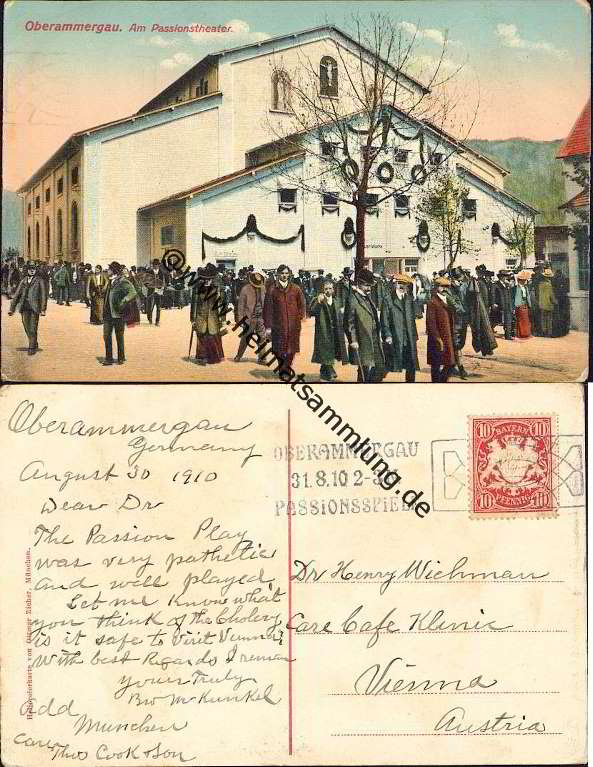 Oberammergau. Am Passionstheater.
@www.heimatsammlung.de
Oberammergau
Germany
August 30 1910
Dear Dr
The Passion Play
was very pathetic
and well played.
Let me know what
you think of the Cholery
is it safe to visit Vienna?
With best Regards I remain
yours Truly
McKunkel
Add
Munchen
Care Thos Cook & Son
OBERAMMERGAU
31.8.10 2-3
PASSIONSSPIELE
BAYERN
10 10
10 PFENNIG 10
Dr Henry Wichman
Care Cafe Klinic
Vienna
Austria
München.